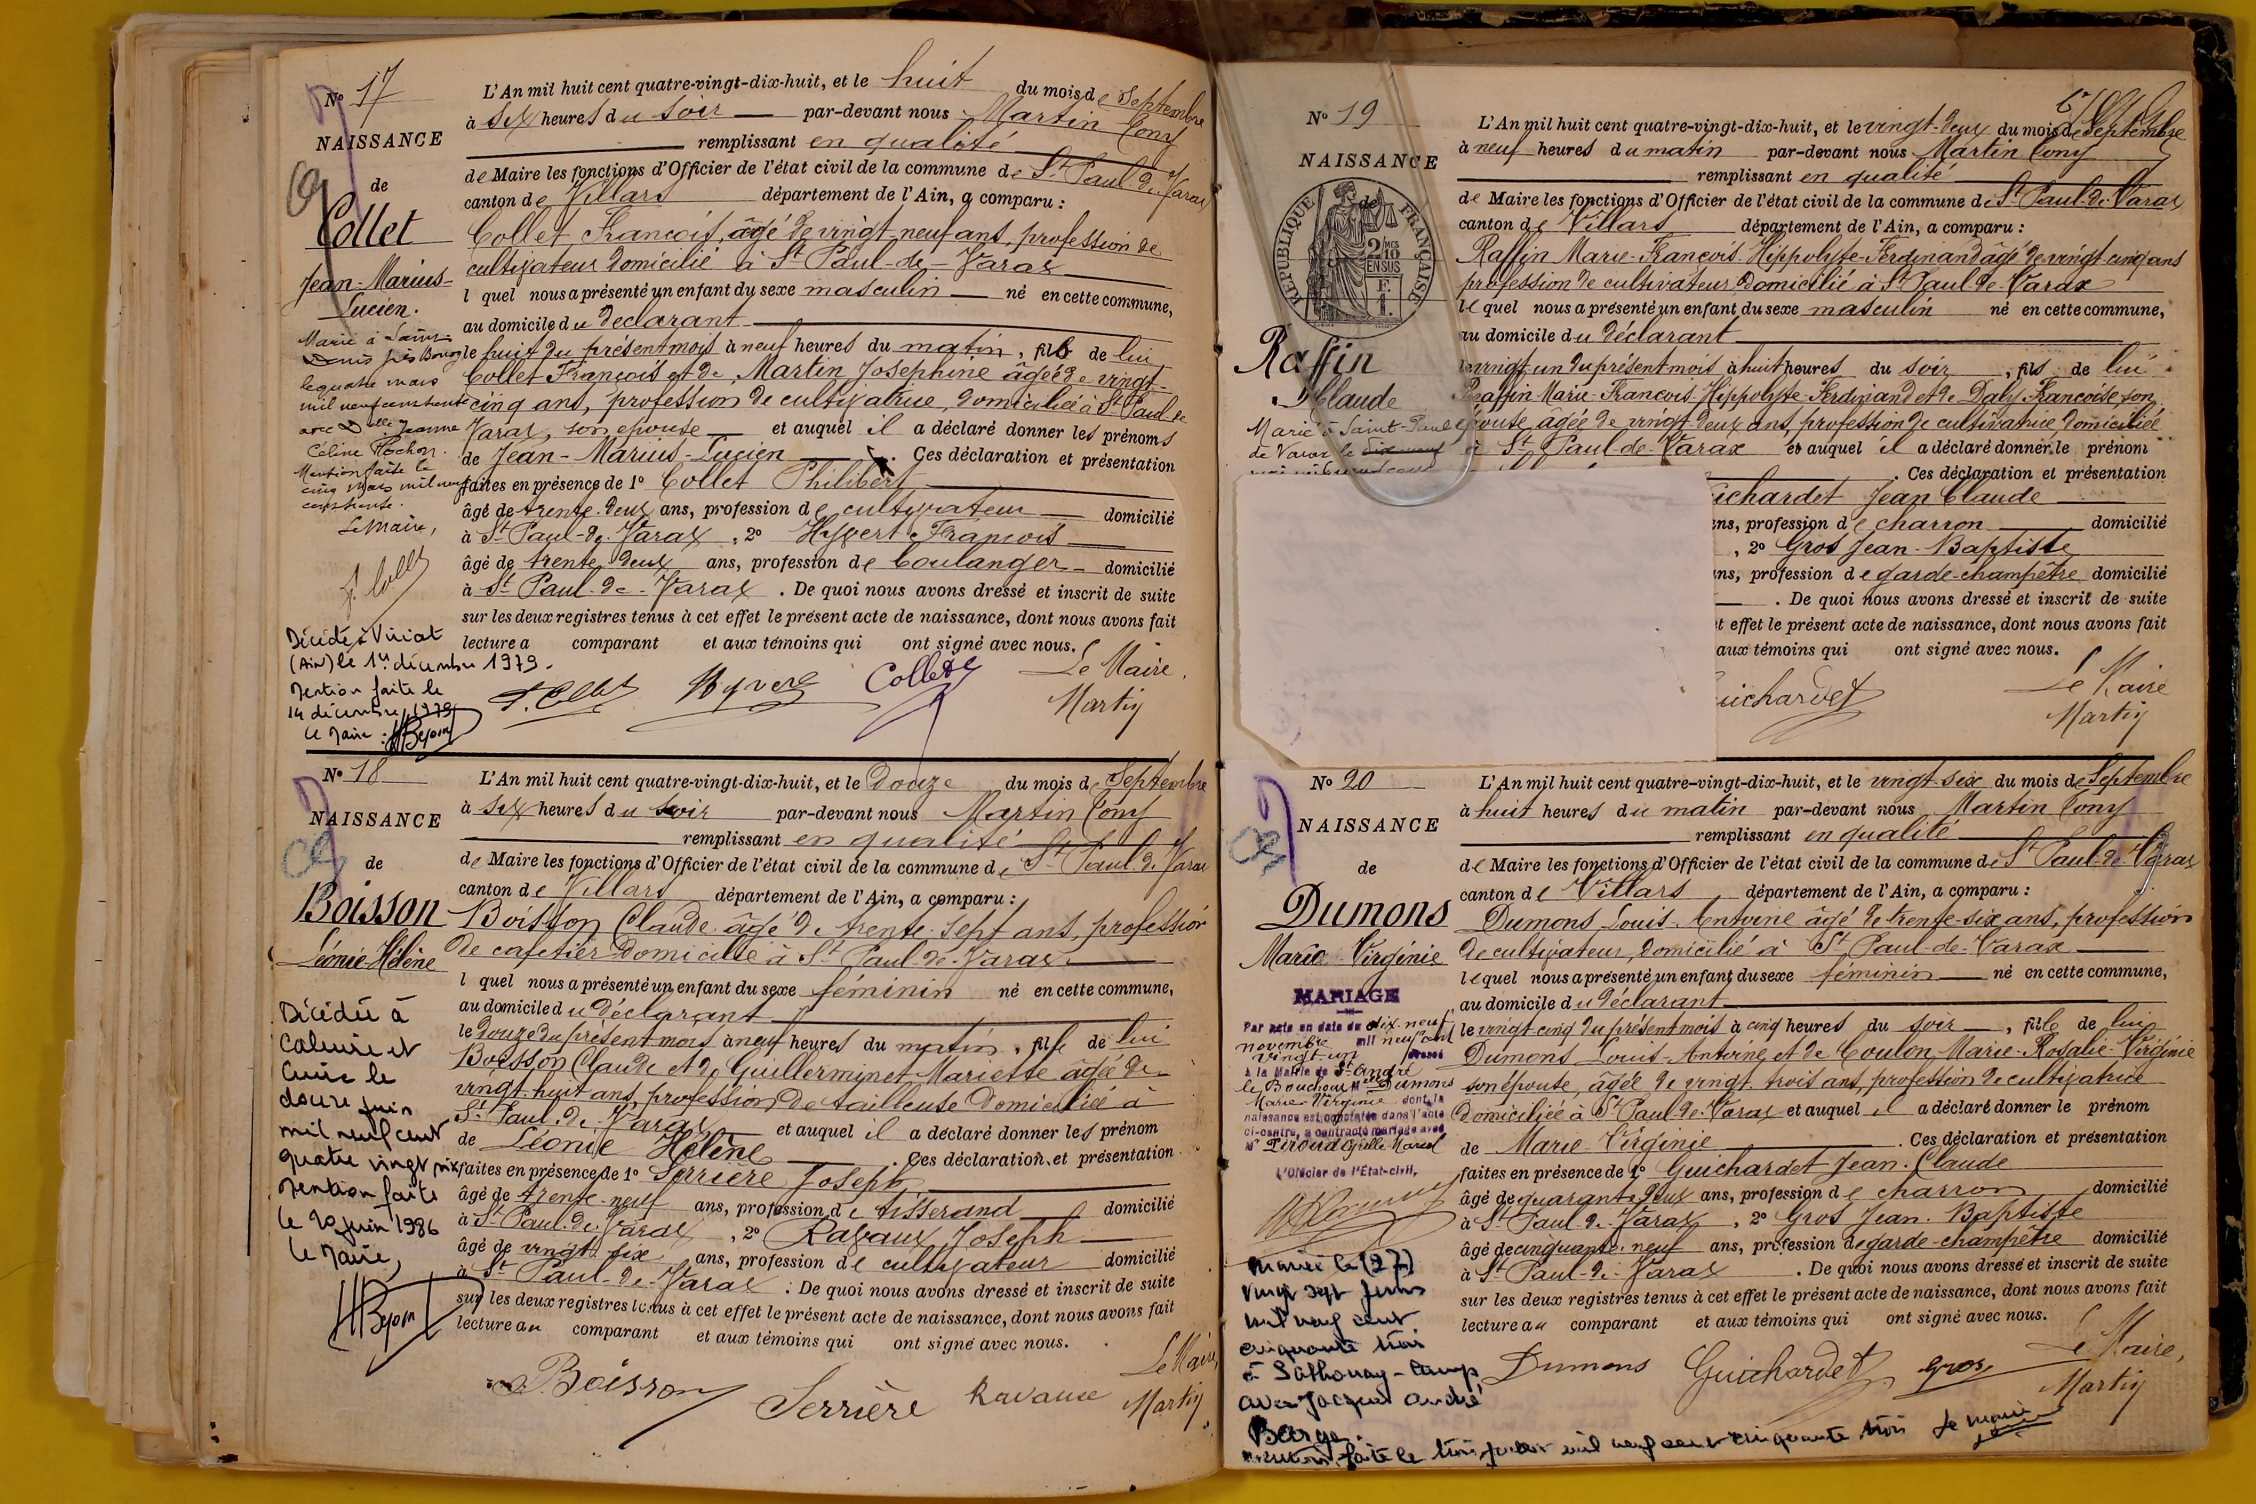 N° 17
NAISSANCE
de
Collet
Jean-Marius-
Lucien.
Marié à Saint-
Denis près Bourg
le quatre mars
mil neuf cent trente
avec Dlle Jeanne
Céline Rochon.
Mention faite le
cinq mars mil neuf
cent trente.
Le Maire,
Décédé à Viriat
(Ain) le 1er décembre 1979.
Mention faite le
14 décembre 1979
Le Maire :
L'An mil huit cent quatre-vingt-dix-huit, et le huit du mois de Septembre
à six heures du soir par-devant nous Martin Tony
remplissant en qualité
de Maire les fonctions d'Officier de l'état civil de la commune de St Paul-de-Varax
canton de Villars département de l'Ain, a comparu :
Collet François, âgé de vingt-neuf ans, profession de
cultivateur domicilié à St Paul-de-Varax
l quel nous a présenté un enfant du sexe masculin né en cette commune,
au domicile du déclarant
le huit du présent mois à neuf heures du matin, fils de lui
Collet François et de Martin Josephine âgée de vingt-
cinq ans, profession de cultivatrice, domiciliée à St Paul de
Varax, son epouse et auquel il a déclaré donner les prénoms
de Jean-Marius-Lucien. Ces déclaration et présentation
faites en présence de 1° Collet Philibert
âgé de trente-deux ans, profession de cultivateur domicilié
à St Paul-de-Varax, 2° Hyvert François
âgé de trente deux ans, profession de boulanger domicilié
à St Paul-de-Varax. De quoi nous avons dressé et inscrit de suite
sur les deux registres tenus à cet effet le présent acte de naissance, dont nous avons fait
lecture a comparant et aux témoins qui ont signé avec nous.
Hyvert Collet Le Maire.
Martin
N° 18
NAISSANCE
de
Boisson
Léonie-Hélène
Décédée à
Caluire et
Cuire le
douze juin
mil neuf cent
quatre vingt six
Mention faite
le 20 juin 1986
Le Maire,
L'An mil huit cent quatre-vingt-dix-huit, et le douze du mois de Septembre
à six heures du soir par-devant nous Martin Tony
remplissant en qualité
de Maire les fonctions d'Officier de l'état civil de la commune de St Paul-de-Varax
canton de Villars département de l'Ain, a comparu :
Boisson Claude âgé de trente-sept ans, profession
de cafetier domicilié à St Paul-de-Varax
l quel nous a présenté un enfant du sexe féminin né en cette commune,
au domicile du déclarant
le douze du présent mois à neuf heures du matin, fille de lui
Boisson Claude et de Guillerminet Mariette âgée de
vingt-huit ans, profession de tailleuse domiciliée à
St Paul-de-Varax et auquel il a déclaré donner les prénom
de Léonie Hélène. Ces déclaration et présentation
faites en présence de 1° Serrière Joseph
âgé de trente-neuf ans, profession de tisserand domicilié
à St Paul-de-Varax, 2° Ravaux Joseph
âgé de vingt-six ans, profession de cultivateur domicilié
à St Paul-de-Varax. De quoi nous avons dressé et inscrit de suite
sur les deux registres tenus à cet effet le présent acte de naissance, dont nous avons fait
lecture au comparant et aux témoins qui ont signé avec nous.
Boisson Serrière Ravaux Le Maire,
Martin
N° 19
NAISSANCE
de
RÉPUBLIQUE FRANÇAISE
2/10 EN SUS
Raffin
Claude
Marié à Saint-Paul
de Varax le dix neuf
L'An mil huit cent quatre-vingt-dix-huit, et le vingt-deux du mois de Septembre
à neuf heures du matin par-devant nous Martin Tony
remplissant en qualité
de Maire les fonctions d'Officier de l'état civil de la commune de St Paul-de-Varax
canton de Villars département de l'Ain, a comparu :
Raffin Marie-François-Hippolyte-Ferdinand âgé de vingt cinq ans
profession de cultivateur domicilié à St Paul-de-Varax
lequel nous a présenté un enfant du sexe masculin né en cette commune,
au domicile du déclarant
le vingt-un du présent mois à huit heures du soir, fils de lui
Raffin-Marie-François-Hippolyte-Ferdinand et de Daly Françoise, son
épouse, âgée de vingt deux ans, profession de cultivatrice, domiciliée
à St Paul-de-Varax et auquel il a déclaré donner le prénom
. Ces déclaration et présentation
ichardet Jean Claude
ans, profession de charron domicilié
, 2° Gros Jean-Baptiste
ans, profession de garde-champêtre domicilié
. De quoi nous avons dressé et inscrit de suite
t effet le présent acte de naissance, dont nous avons fait
aux témoins qui ont signé avec nous.
uichardet Le Maire
Martin
N° 20
NAISSANCE
de
Dumons
Marie-Virginie
MARIAGE
Par acte en date du dix-neuf
novembre mil neuf cent
vingt-un dressé
à la Mairie de St André
le Bouchoux Mlle Dumons
Marie-Virginie dont la
naissance est constatée dans l'acte
ci-contre, a contracté mariage avec
Mr Peroud Cyrille Marcel
L'Officier de l'État-civil,
Mariée le (27)
vingt sept juin
mil neuf cent
cinquante trois
à Sathonay-Camp
avec Jacques André
Barge.
Mention faite le trois juillet mil neuf cent cinquante trois Le maire
L'An mil huit cent quatre-vingt-dix-huit, et le vingt-six du mois de Septembre
à huit heures du matin par-devant nous Martin Tony
remplissant en qualité
de Maire les fonctions d'Officier de l'état civil de la commune de St Paul-de-Varax
canton de Villars département de l'Ain, a comparu :
Dumons Louis-Antoine âgé de trente-six ans, profession
de cultivateur, domicilié à St Paul-de-Varax
lequel nous a présenté un enfant du sexe féminin né en cette commune,
au domicile du déclarant
le vingt cinq du présent mois à cinq heures du soir, fille de lui
Dumons Louis-Antoine et de Coulon Marie-Rosalie-Virginie
son épouse, âgée de vingt trois ans, profession de cultivatrice
domiciliée à St Paul-de-Varax et auquel il a déclaré donner le prénom
de Marie Virginie. Ces déclaration et présentation
faites en présence de 1° Guichardet Jean-Claude
âgé de quarante deux ans, profession de charron domicilié
à St Paul-de-Varax, 2° Gros Jean-Baptiste
âgé de cinquante-neuf ans, profession de garde-champêtre domicilié
à St Paul-de-Varax. De quoi nous avons dressé et inscrit de suite
sur les deux registres tenus à cet effet le présent acte de naissance, dont nous avons fait
lecture au comparant et aux témoins qui ont signé avec nous.
Dumons Guichardet Gros Le Maire,
Martin